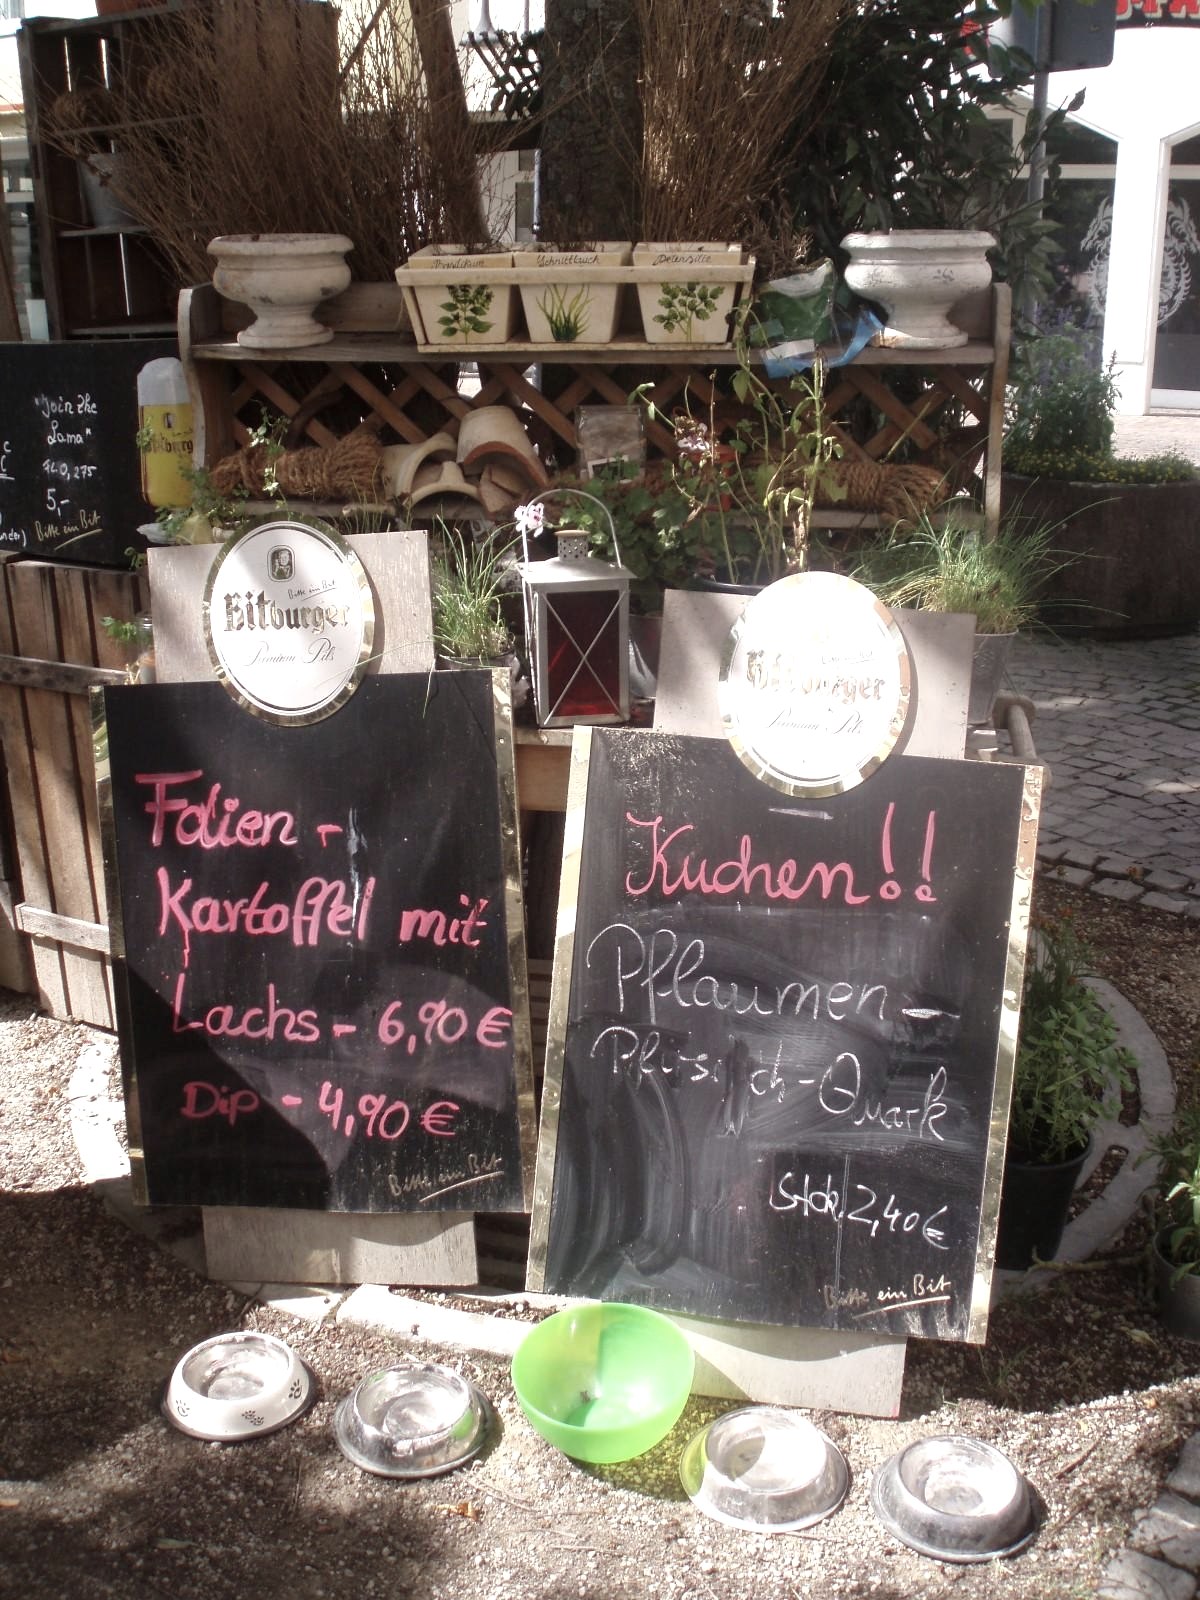 Basilikum
Schnittlauch
Petersilie
"Join the
Lama"
5,-
Bitte ein Bit
Bitburg
Bitte ein Bit
Bitburger
Premium Pils
Folien-
Kartoffel mit
Lachs - 6,90 €
Dip - 4,90 €
Bitte ein Bit
Bitburger
Premium Pils
Kuchen!!
Pflaumen-
Pfirsich-Quark
Stck 2,40 €
Bitte ein Bit